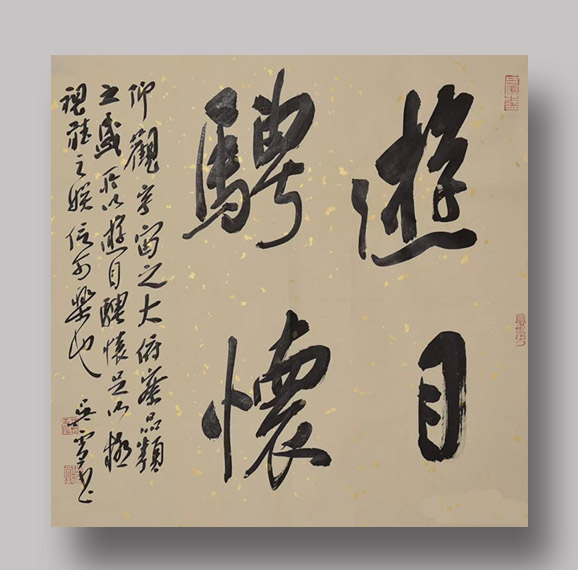 遊目
騁懷
仰觀宇宙之大俯察品類
之盛所以遊目騁懷足以極
視聽之娛信可樂也
吳雪書